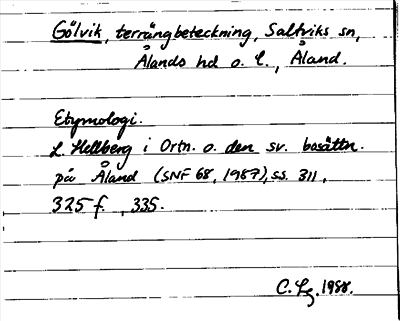 Gölvik, terrängbeteckning, Saltviks sn,
Ålands hd o. l., Åland.
Etymologi.
L. Hellberg i Ortn. o. den sv. bosättn.
på Åland (SNF 68, 1987), ss. 311,
325 f., 335.
C. Lg. 1988.